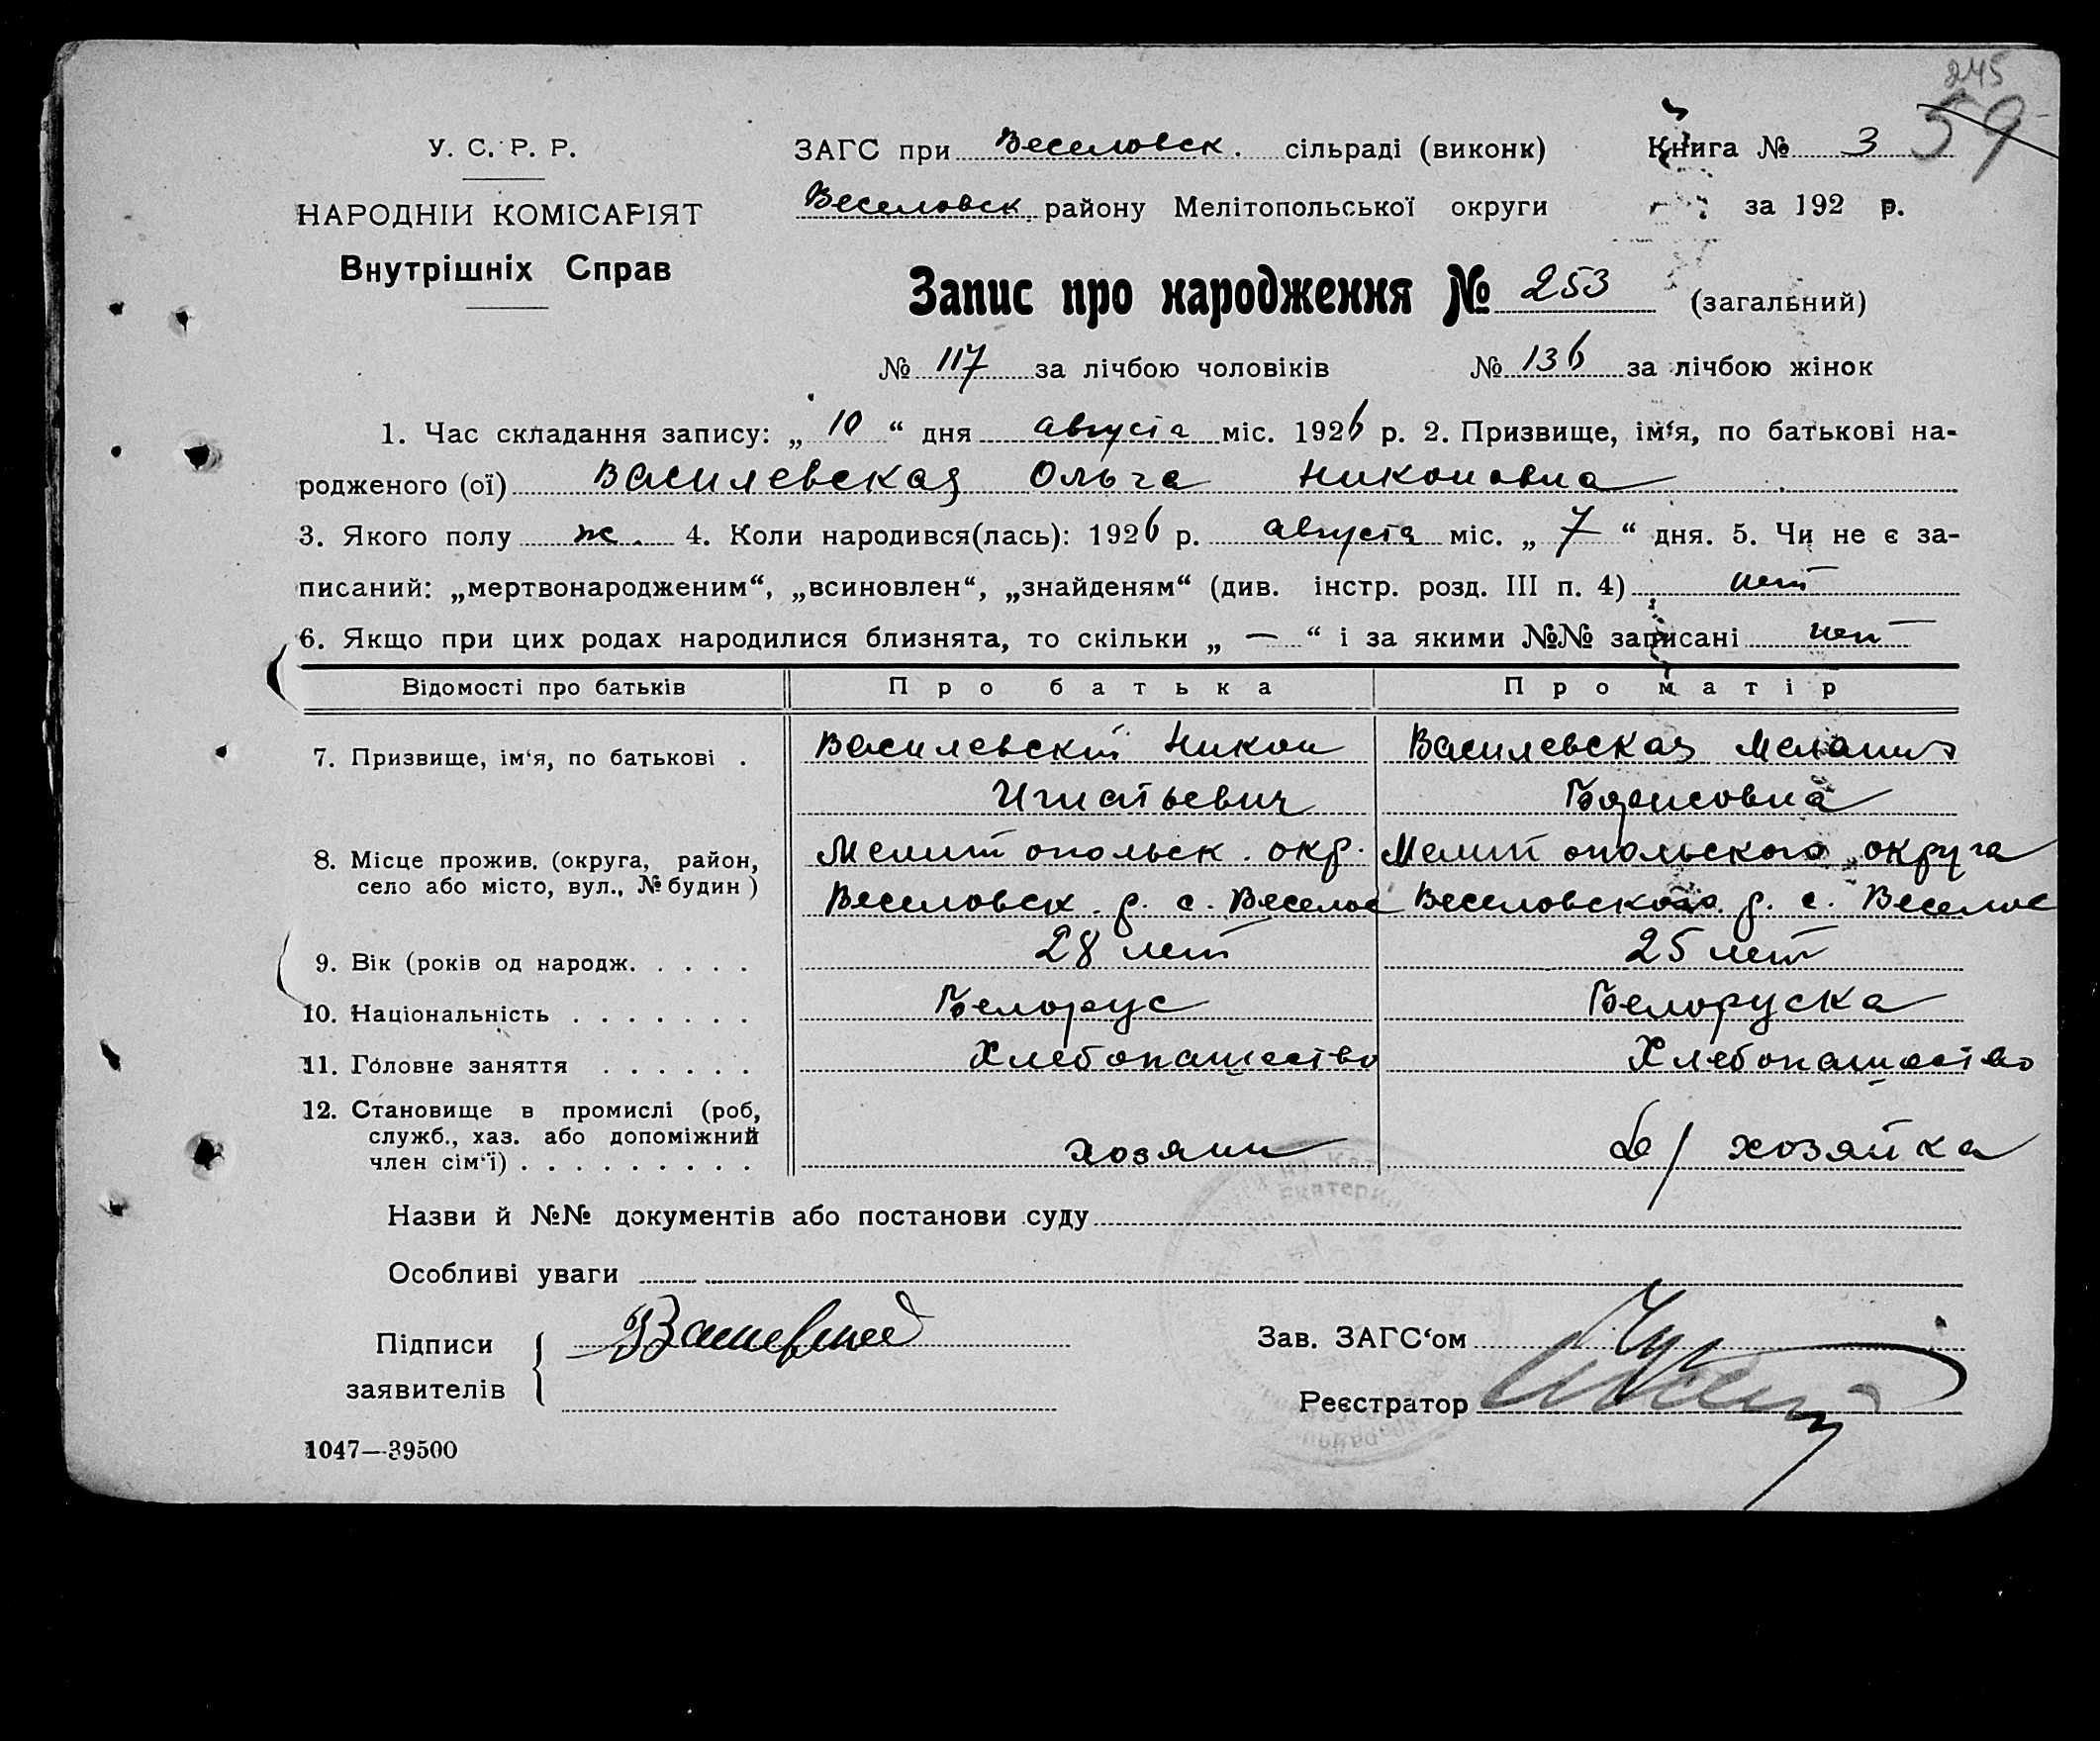 245
59
У. С. Р. Р.
НАРОДНІЙ КОМІСАРІЯТ
Внутрішніх Справ
ЗАГС при Веселовск. сільраді (виконк)
Веселовск. району Мелітопольської округи
Книга № 3
за 192 р.
Запис про народження № 253 (загальний)
№ 117 за лічбою чоловіків № 136 за лічбою жінок
1. Час складання запису: „ 10 “ дня августа міс. 1926 р. 2. Призвище, ім'я, по батькові на-
родженого (ої) Василевская Ольга Никоновна
3. Якого полу ж. 4. Коли народився(лась): 1926 р. августа міс. „ 7 “ дня. 5. Чи не є за-
писаний: „мертвонародженим“, „всиновлен“, „знайденям“ (див. інстр. розд. III п. 4) нет
6. Якщо при цих родах народилися близнята, то скільки „ — “ і за якими №№ записані нет
Відомості про батьків Про батька Про матір
7. Призвище, ім'я, по батькові . Василевский Никон Василевская Мелания
Игнатьевич Борисовна
8. Місце прожив. (округа, район, Мелитопольск. окр. Мелитопольского округа
село або місто, вул., № будин) Веселовск. р. с. Веселое Веселовского р. с. Веселое
9. Вік (років од народж. . . . . 28 лет 25 лет
10. Національність . . . . . . . Белорус Белоруска
11. Головне заняття . . . . . . Хлебопашество Хлебопашество
12. Становище в промислі (роб,
служб., хаз. або допоміжний
член сім'ї) . . . . . . . . . хозяин д/хозяйка
Назви й №№ документів або постанови суду
Особливі уваги
Підписи
заявителів
Зав. ЗАГС'ом
Реєстратор
1047—39500